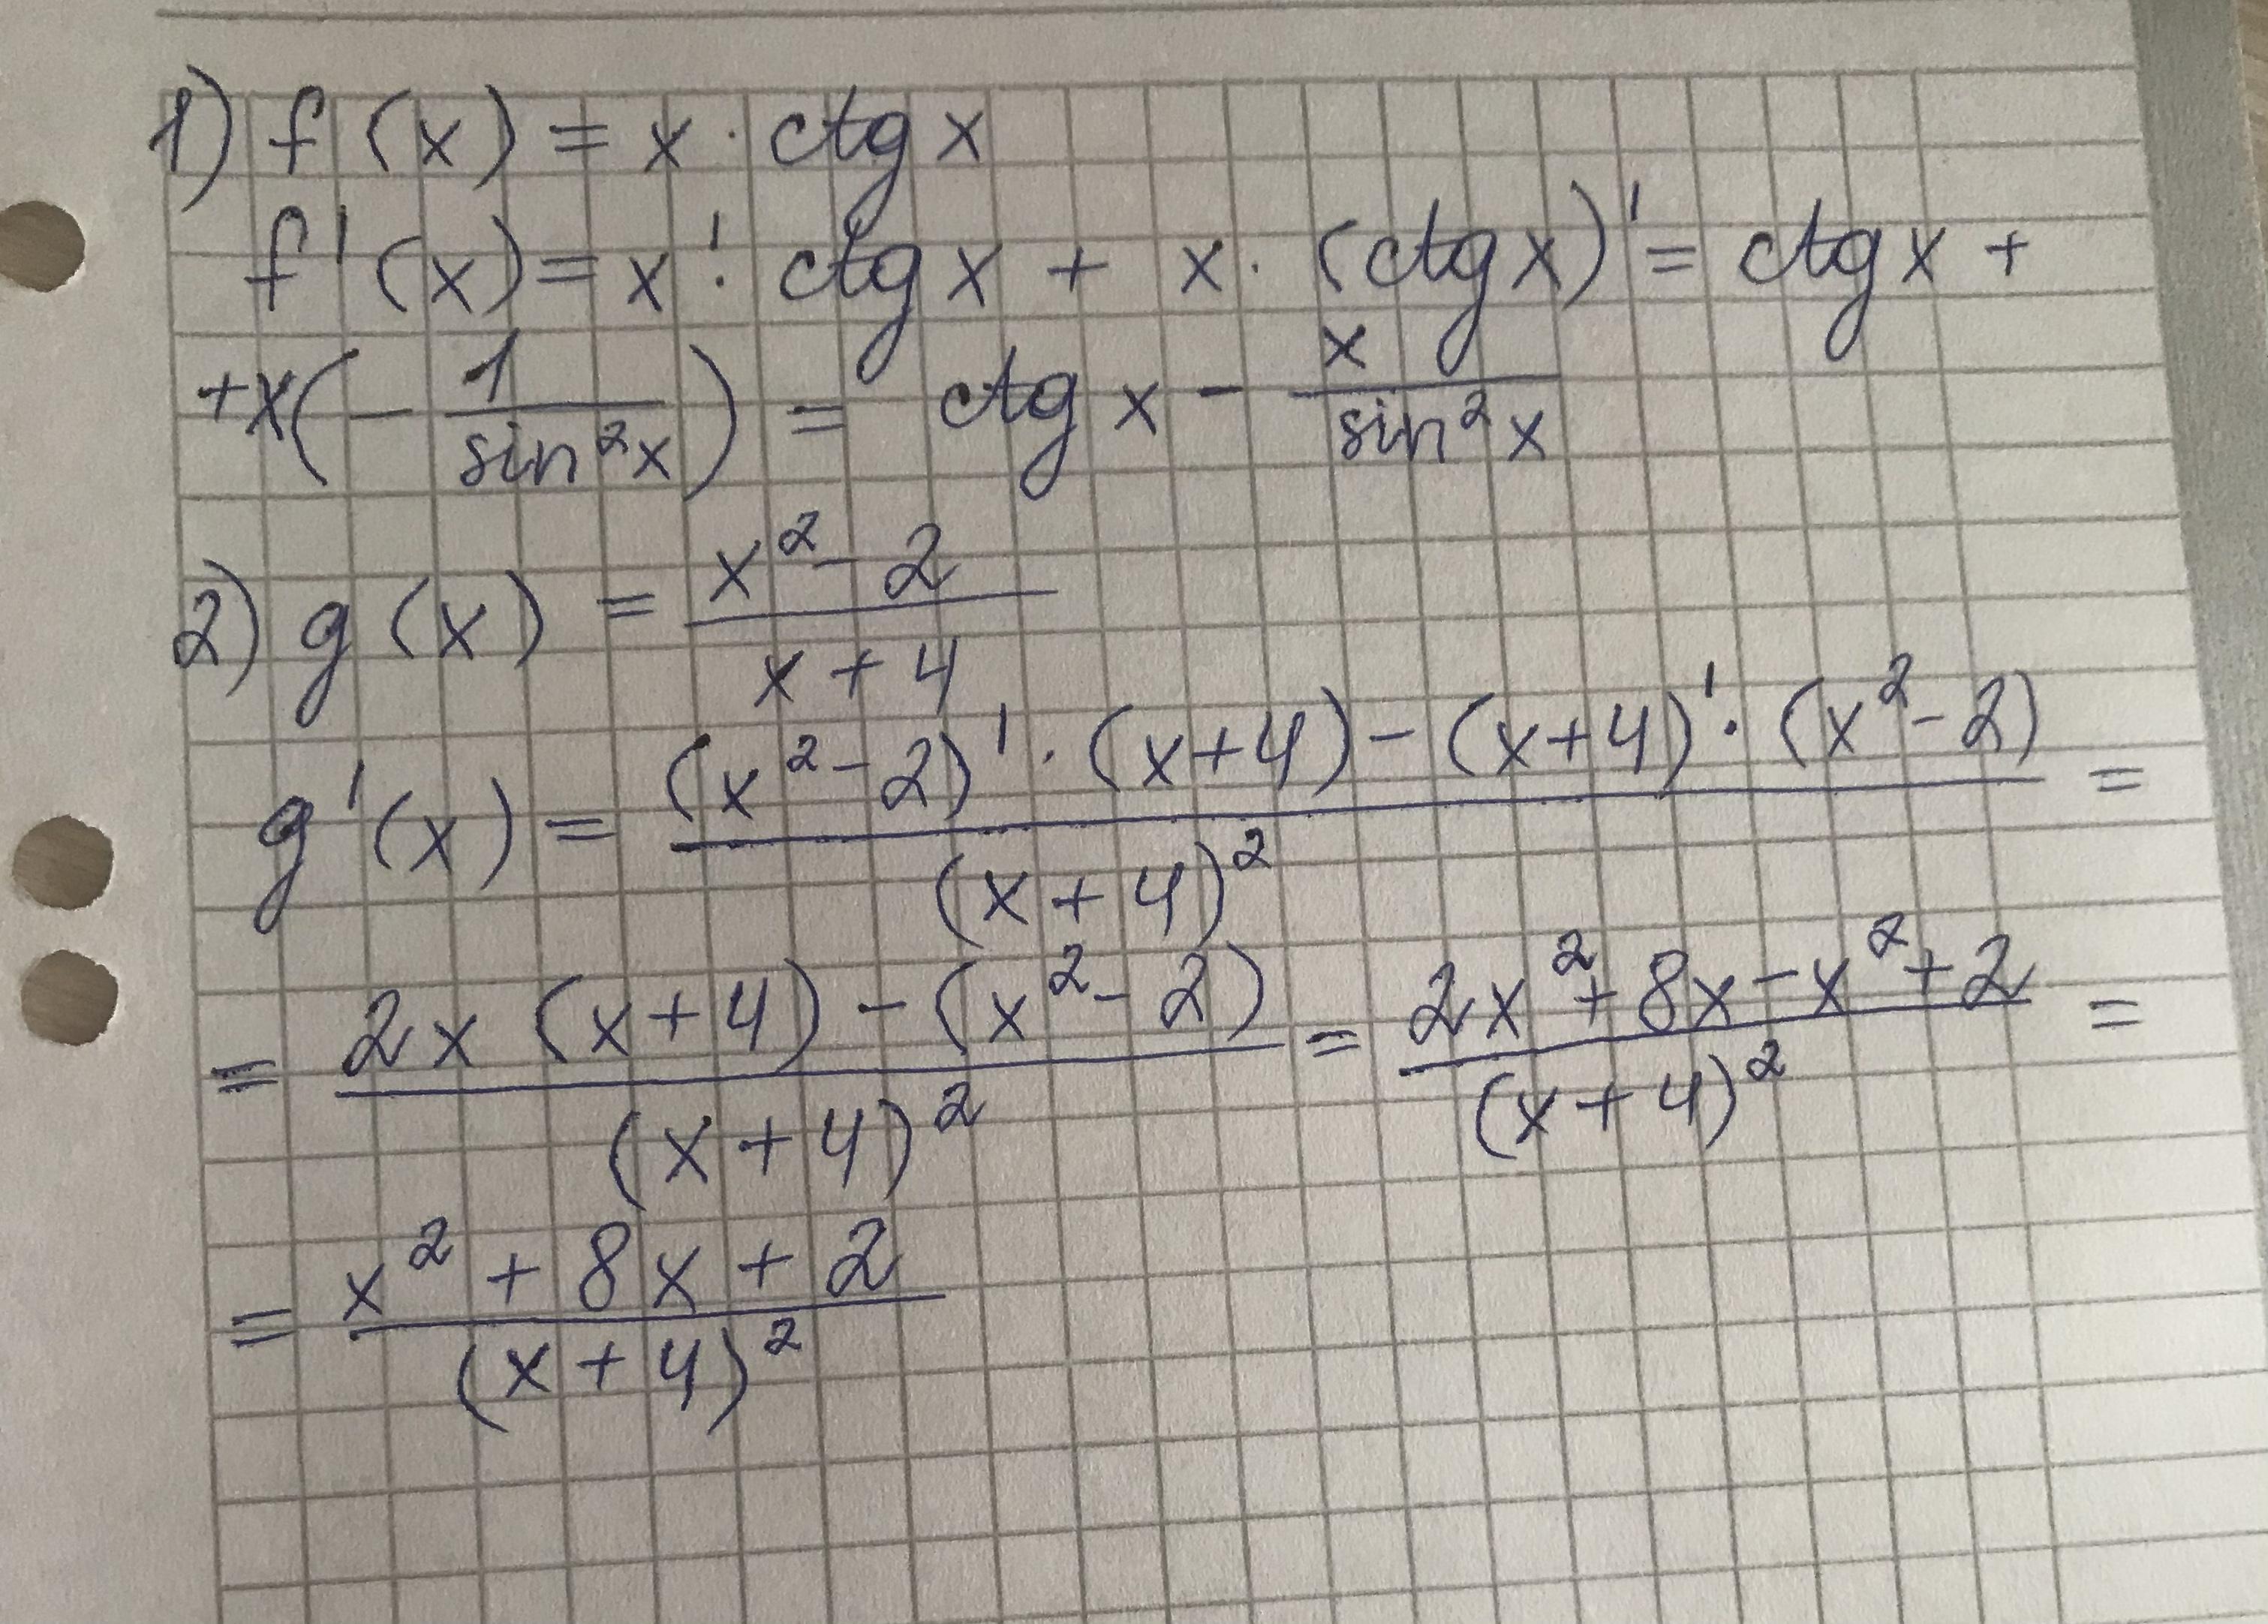 1) f(x) = x · ctg x
f'(x) = x' · ctg x + x · (ctg x)' = ctg x +
+ x(- 1/sin²x) = ctg x - x/sin²x
2) g(x) = (x² - 2)/(x + 4)
g'(x) = ((x² - 2)' · (x + 4) - (x + 4)' · (x² - 2))/(x + 4)² =
= (2x (x + 4) - (x² - 2))/(x + 4)² = (2x² + 8x - x² + 2)/(x + 4)² =
= (x² + 8x + 2)/(x + 4)²